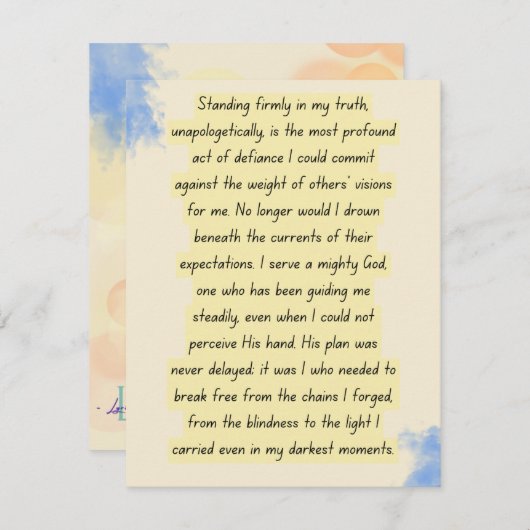 Standing firmly in my truth,
unapologetically, is the most profound
act of defiance I could commit
against the weight of others' visions
for me. No longer would I drown
beneath the currents of their
expectations. I serve a mighty God,
one who has been guiding me
steadily, even when I could not
perceive His hand. His plan was
never delayed; it was I who needed to
break free from the chains I forged,
from the blindness to the light I
carried even in my darkest moments.